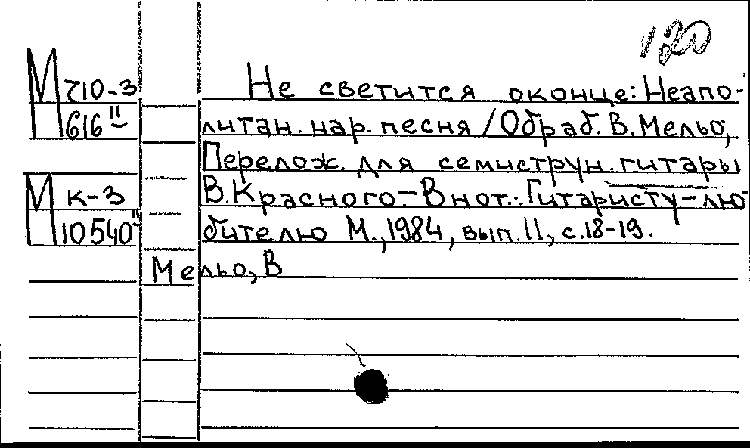 120
М г10-3 Не светится оконце: Неапо-
616 II литан. нар. песня / Обраб. В. Мельо;
Перелож. для семиструн. гитары
М к-3 В. Красного – В нот.: Гитаристу-лю
10540 II бителю М., 1984, вып. 11, с. 18-19.
Мельо, В